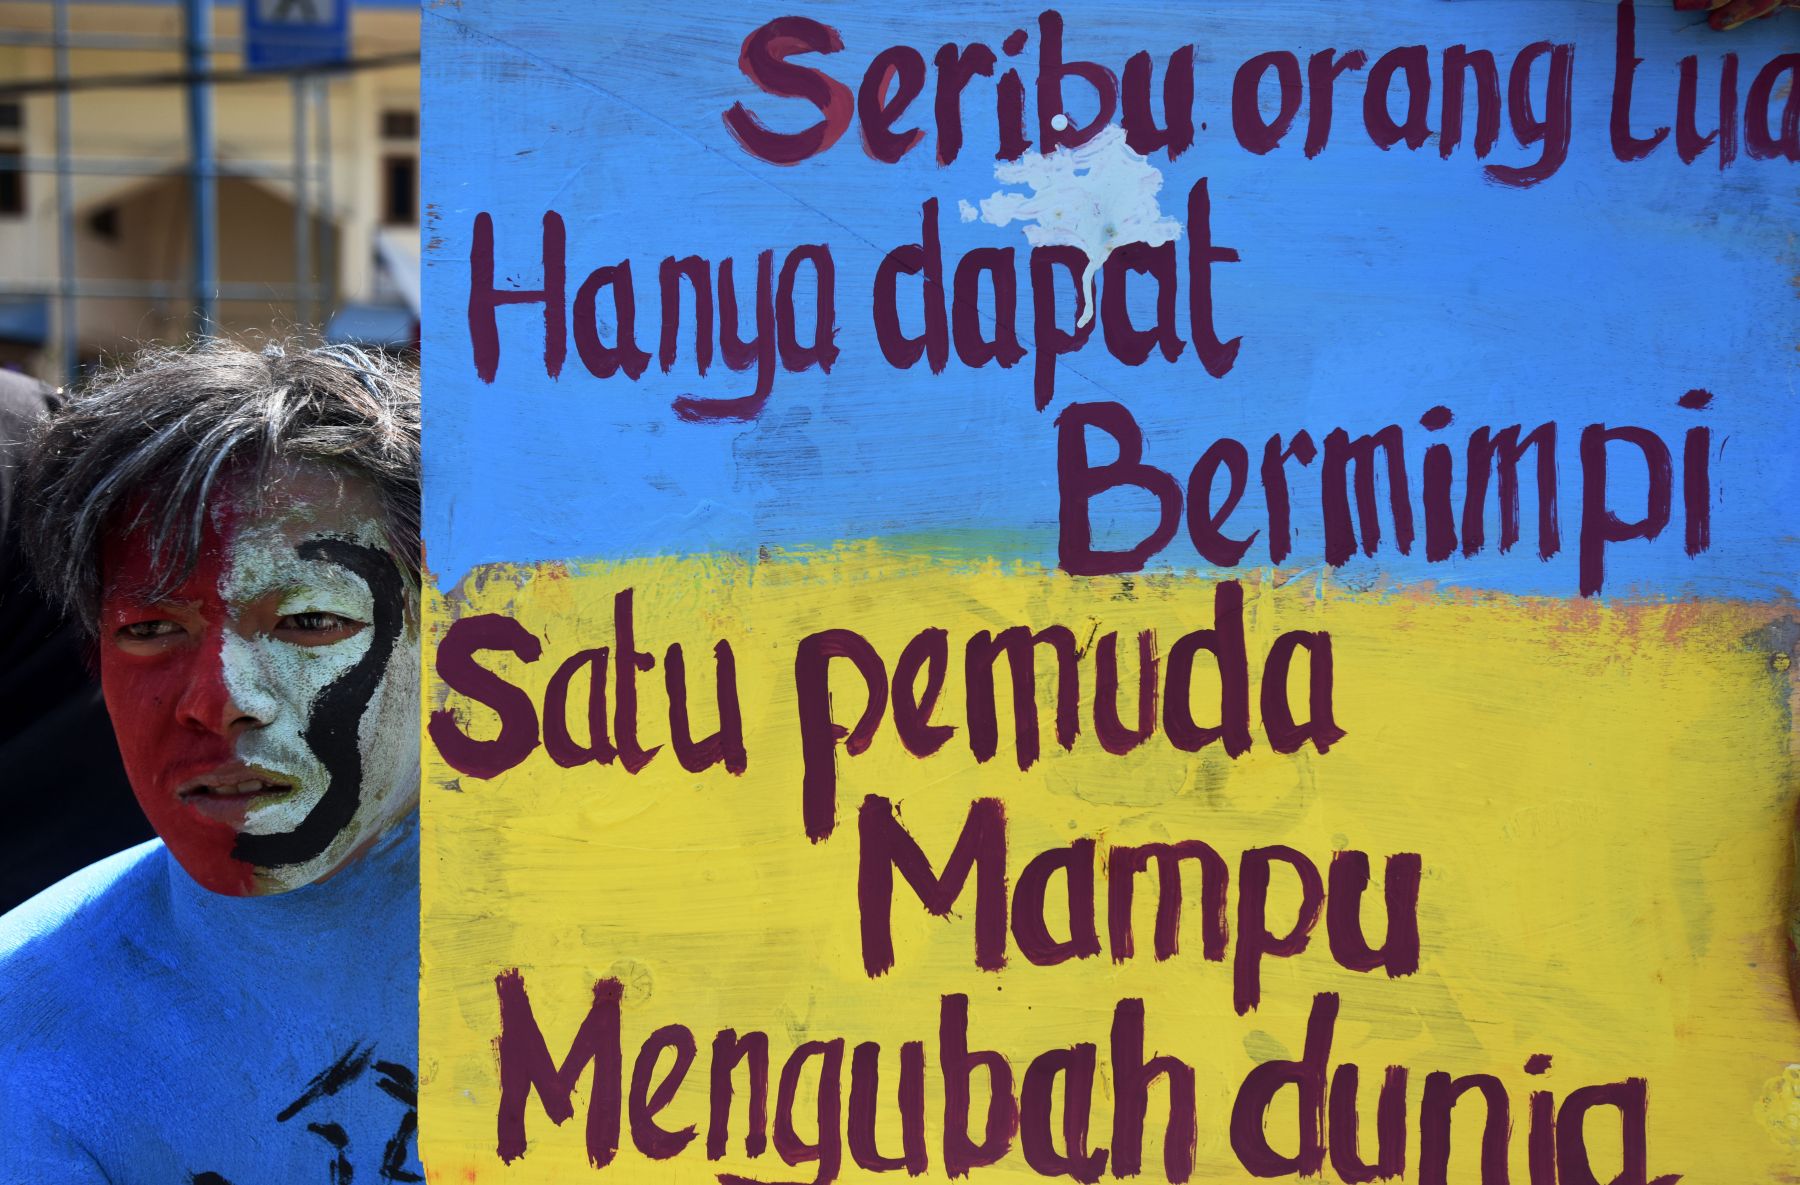 Seribu orang tua
Hanya dapat
Bermimpi
Satu pemuda
Mampu
Mengubah dunia